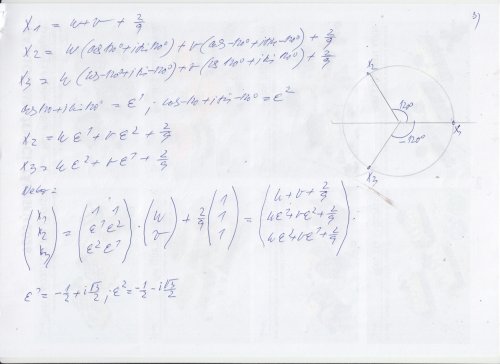 3)
x₁ = u + v + 2/9
x₂ = u(cos 120° + i sin 120°) + v(cos -120° + i sin -120°) + 2/9
x₃ = u(cos -120° + i sin -120°) + v(cos 120° + i sin 120°) + 2/9
cos 120° + i sin 120° = ε¹ ; cos -120° + i sin -120° = ε²
x₂ = uε¹ + vε² + 2/9
x₃ = uε² + vε¹ + 2/9
(x₁ x₂ x₃) = (1 1 ε¹ ε² ε² ε¹) · (u v) + 2/9 (1 1 1) = (u + v + 2/9 uε¹ + vε² + 2/9 uε² + vε¹ + 2/9).
ε¹ = -1/2 + i √3/2 ; ε² = -1/2 - i √3/2
x₂
120°
x₁
-120°
x₃